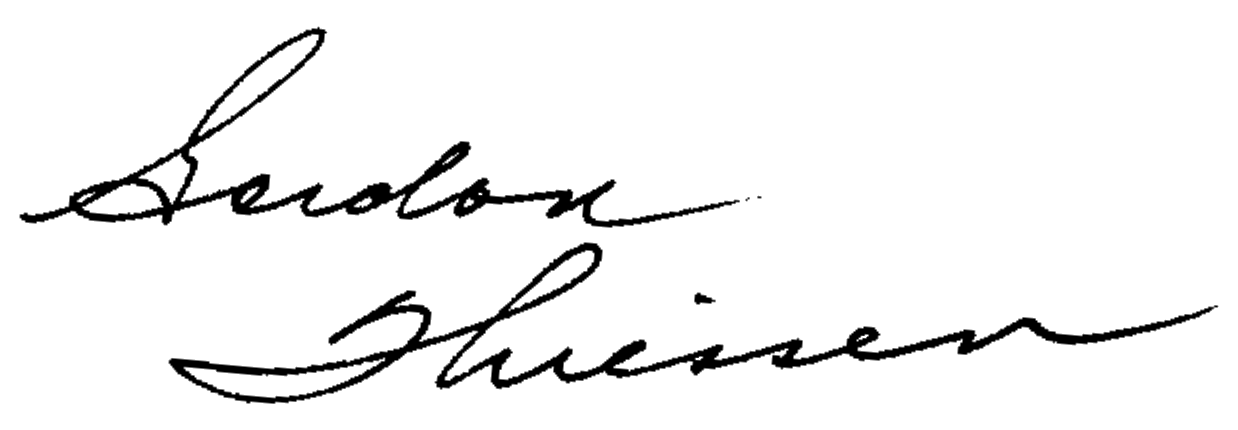 Gordon
Thiessen